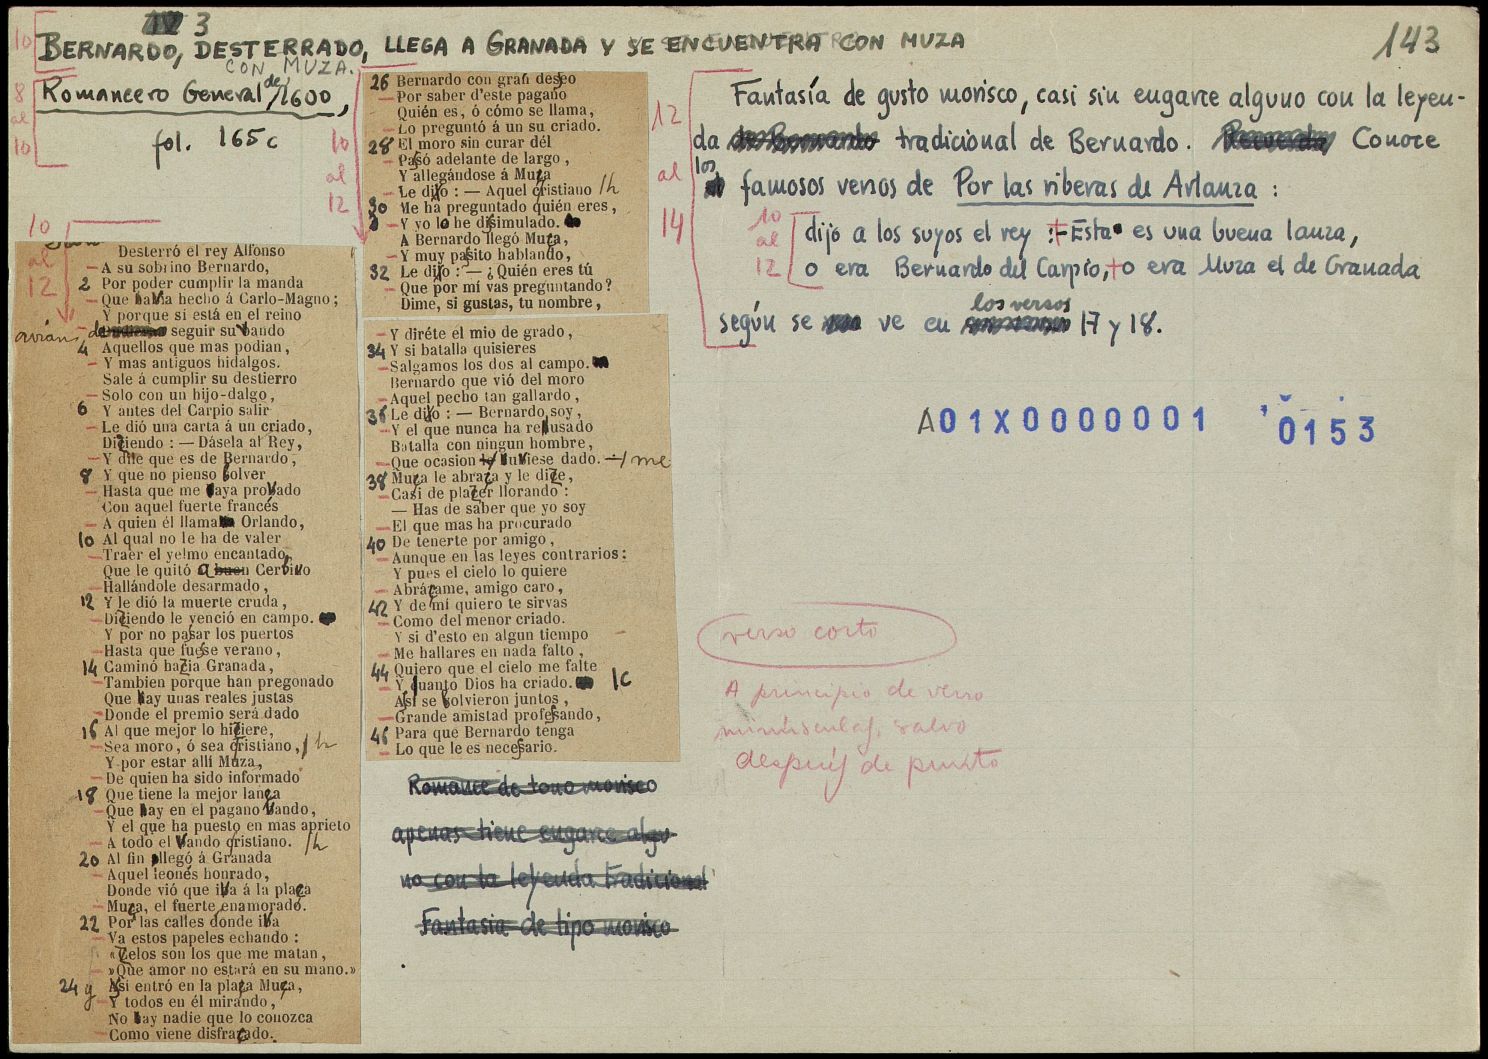 3
143
BERNARDO, DESTERRADO, LLEGA A GRANADA Y SE ENCUENTRA CON MUZA
CON MUZA.
10
8 al 10
Romancero General de 1600,
fol. 165c
10 al 12
10 al 12
Desterró el rey Alfonso
A su sobrino Bernardo,
2 Por poder cumplir la manda
Que havia hecho á Carlo-Magno;
Y porque si está en el reino
avián de seguir su vando
4 Aquellos que mas podian,
Y mas antiguos hidalgos.
Sale á cumplir su destierro
Solo con un hijo-dalgo,
6 Y antes del Carpio salir
Le dió una carta á un criado,
Diziendo: — Dásela al Rey,
Y dile que es de Bernardo,
8 Y que no pienso bolver
Hasta que me aya provado
Con aquel fuerte francés
A quien él llama Orlando,
10 Al qual no le ha de valer
Traer el yelmo encantado,
Que le quitó a buen Cerbino
Hallándole desarmado,
12 Y le dió la muerte cruda,
Diziendo le venció en campo.
Y por no passar los puertos
Hasta que fuesse verano,
14 Caminó hazia Granada,
Tambien porque han pregonado
Que ay unas reales justas
Donde el premio será dado
16 Al que mejor lo hiziere,
Sea moro, ó sea cristiano, /h
Y por estar allí Muza,
De quien ha sido informado
18 Que tiene la mejor lança
Que ay en el pagano vando,
Y el que ha puesto en mas aprieto
A todo el vando cristiano. /h
20 Al fin llegó á Granada
Aquel leonés honrado,
Donde vió que iva á la plaça
Muça, el fuerte enamorado.
22 Por las calles donde iva
Va estos papeles echando:
«Zelos son los que me matan,
»Que amor no estará en su mano.»
24 y Assi entró en la plaça Muça,
Y todos en él mirando,
No ay nadie que lo conozca
Como viene disfraçado.
26 Bernardo con gran desseo
Por saber d'este pagano
Quién es, ó cómo se llama,
Lo preguntó á un su criado.
28 El moro sin curar dél
Passó adelante de largo,
Y allegándose á Muça
Le dixo: — Aquel cristiano /h
30 Me ha preguntado quién eres,
Y yo lo he dissimulado.
A Bernardo llegó Muça,
Y muy passito hablando,
32 Le dixo: — ¿Quién eres tú
Que por mí vas preguntando?
Dime, si gustas, tu nombre,
Y diréte el mio de grado,
34 Y si batalla quisieres
Salgamos los dos al campo.
Bernardo que vió del moro
Aquel pecho tan gallardo,
36 Le dixo: — Bernardo soy,
Y el que nunca ha rehusado
Batalla con ningun hombre,
Que ocasion uviese dado. —/ me
38 Muça le abraça y le dize,
Casi de plazer llorando:
— Has de saber que yo soy
El que mas ha procurado
40 De tenerte por amigo,
Aunque en las leyes contrarios:
Y pues el cielo lo quiere
Abráçame, amigo caro,
42 Y de mí quiero te sirvas
Como del menor criado.
Y si d'esto en algun tiempo
Me hallares en nada falto,
44 Quiero que el cielo me falte
Y quanto Dios ha criado. /c
Assí se bolvieron juntos,
Grande amistad professando,
46 Para que Bernardo tenga
Lo que le es necessario.
Romance de tono morisco
apenas tiene engarce algu-
no con la leyenda tradicional
Fantasia de tipo morisco
12 al 14
Fantasía de gusto morisco, casi sin engarce alguno con la leyen-
da de Bernardo tradicional de Bernardo. Recuerda Conoce
los famosos versos de Por las riberas de Arlanza:
10 al 12
dijo a los suyos el rey: -Esta es una buena lanza,
o era Bernardo del Carpio, o era Muza el de Granada
según se ve en los versos 17 y 18.
A01X0000001 0153
verso corto
A principio de verso
minúsculas, salvo
después de punto